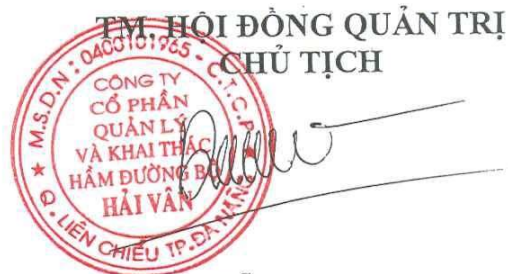 TM. HỘI ĐỒNG QUẢN TRỊ
CHỦ TỊCH
M.S.D.N: 0400101965 - C.T.C.P
CÔNG TY
CỔ PHẦN
QUẢN LÝ
VÀ KHAI THÁC
HẦM ĐƯỜNG BỘ
HẢI VÂN
Q. LIÊN CHIỂU TP. ĐÀ NẴNG